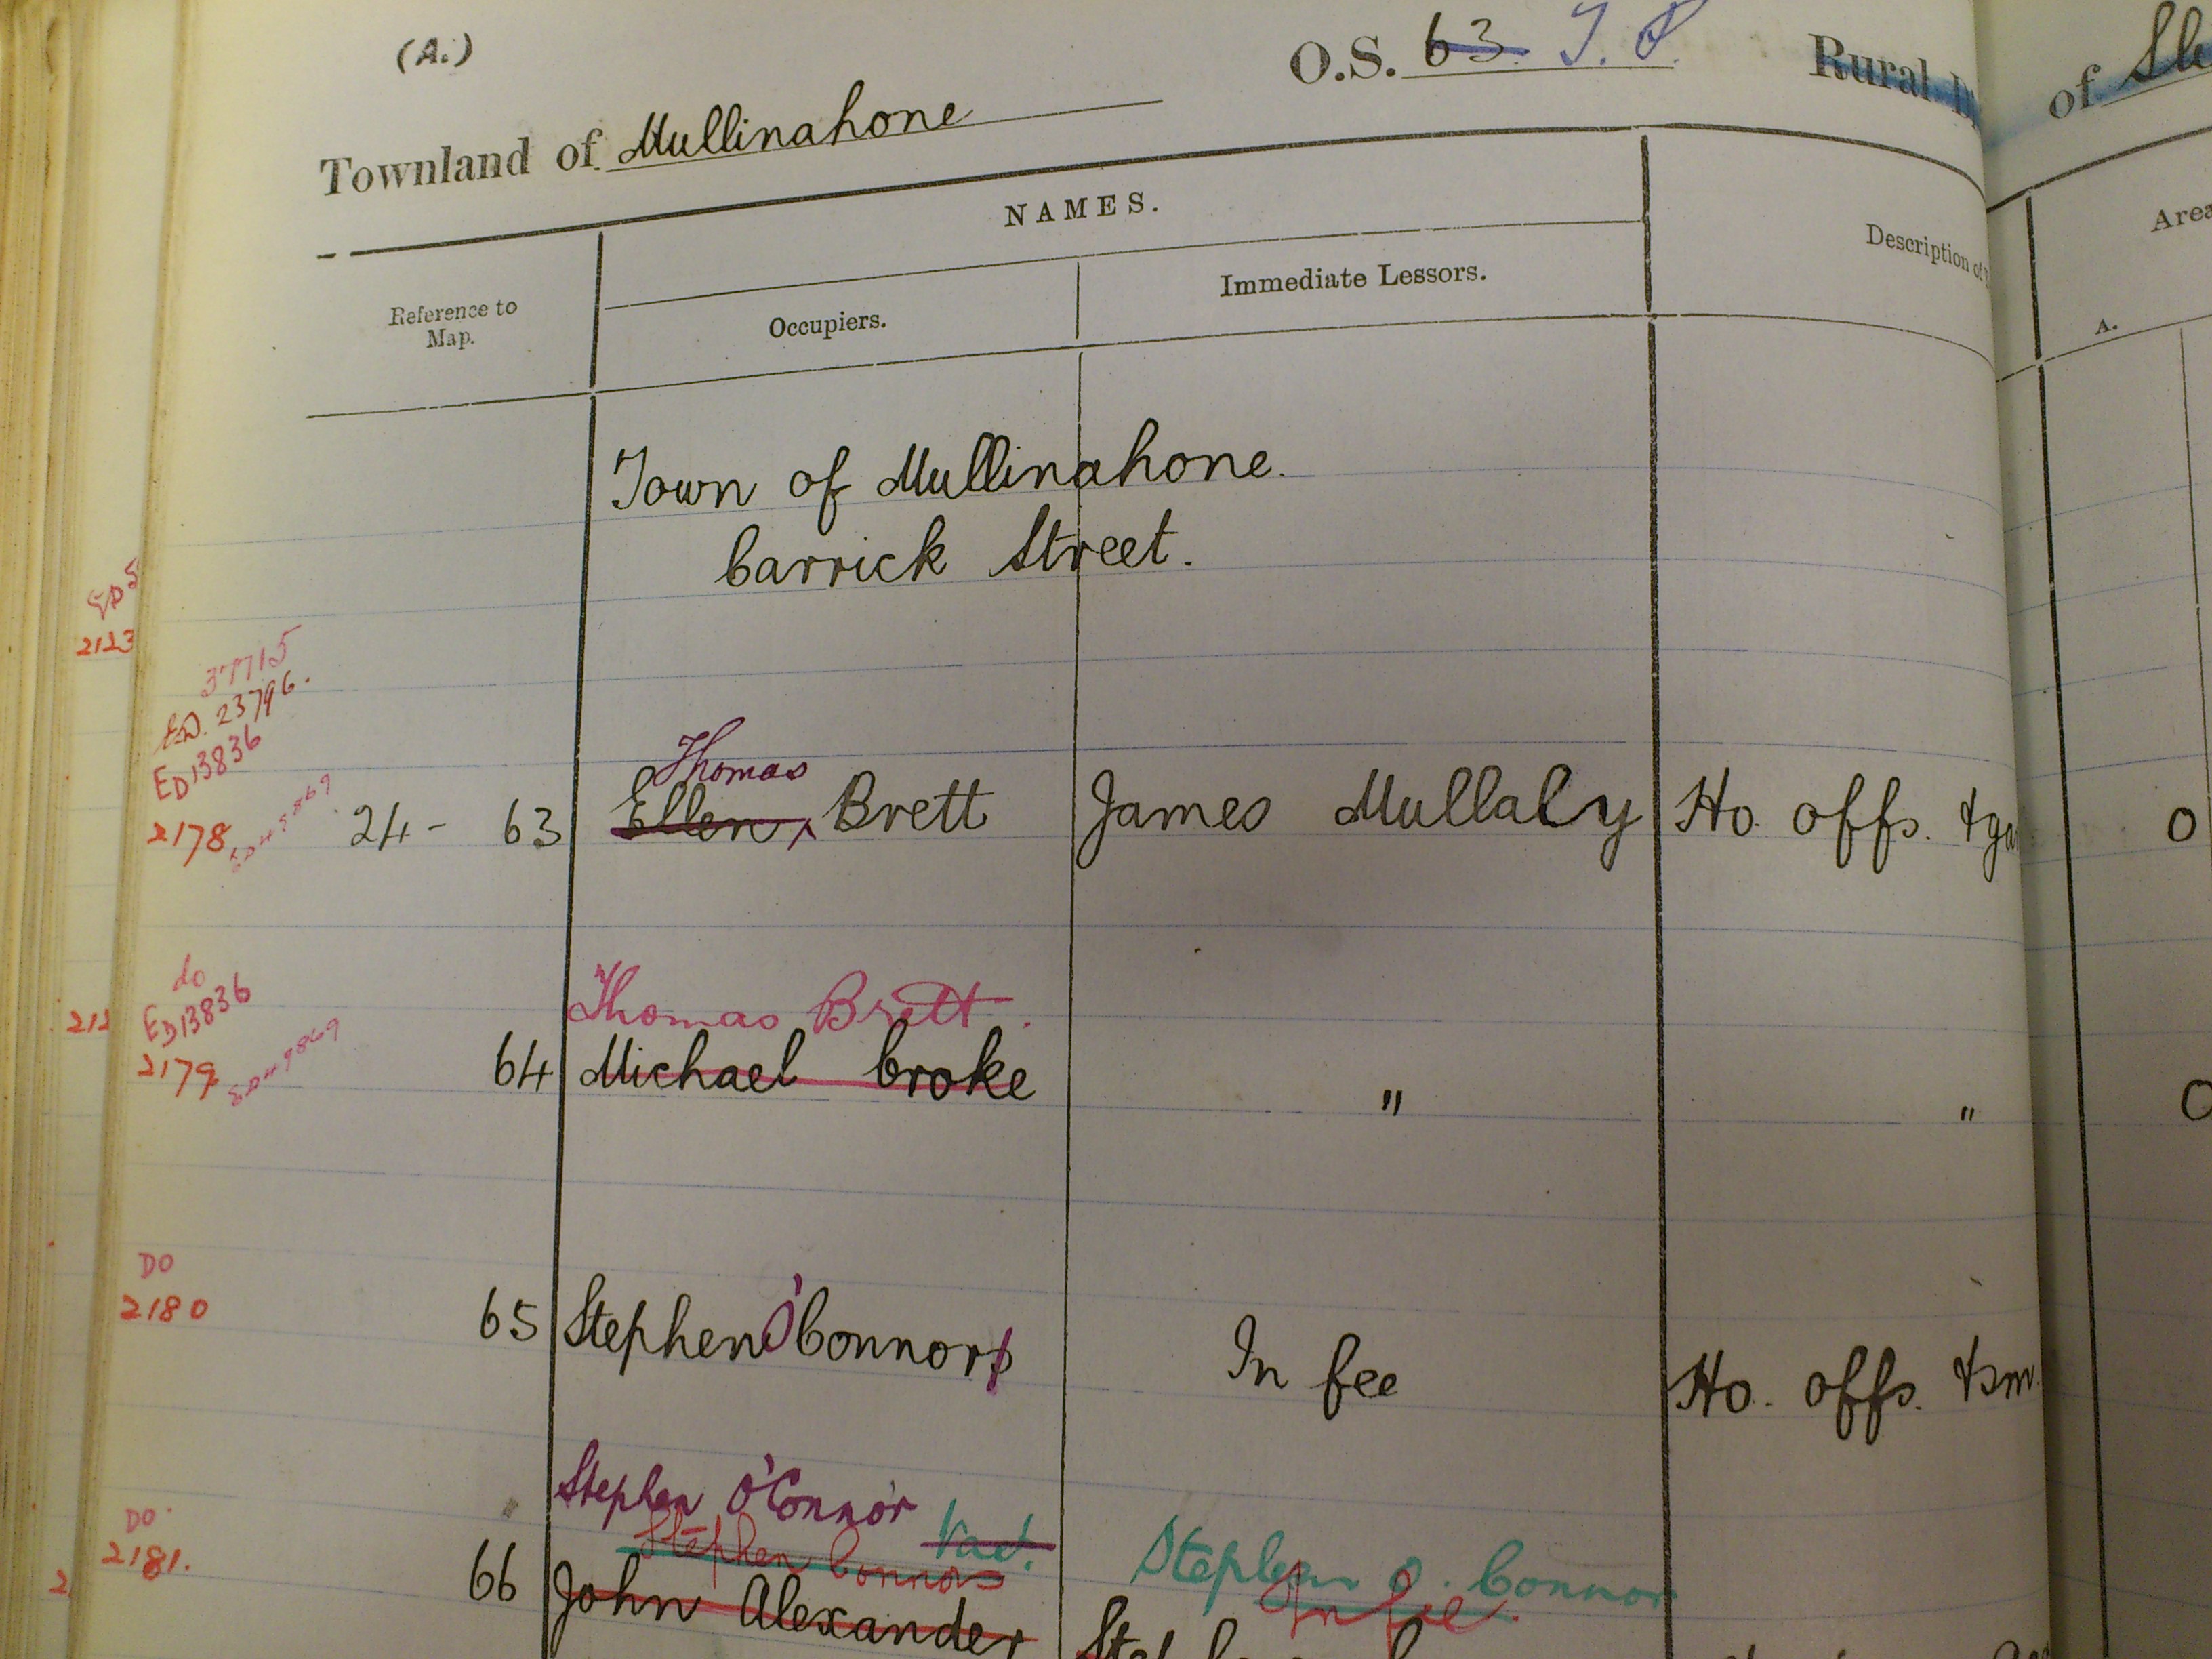 (A.)
O.S. 63. T. P.
Rural
of
Townland of Mullinahone
NAMES.
Reference to
Map.
Occupiers.
Immediate Lessors.
Description of
Area
A.
Town of Mullinahone.
Carrick Street.
2123
37715
ED. 23796.
ED 13836
2178
24 - 63
Thomas
Ellen Brett
James Mullaly
Ho. offs. &
0
do
ED 13836
2179
64
Thomas Brett.
Michael Croke
"
"
0
DO
2180
65
Stephen O'Connors
In fee
Ho. offs. & sm
DO
2181.
66
Stephen O'Connor
Vac.
Stephen Connors
John Alexander
Stephen O. Connor
In fee.